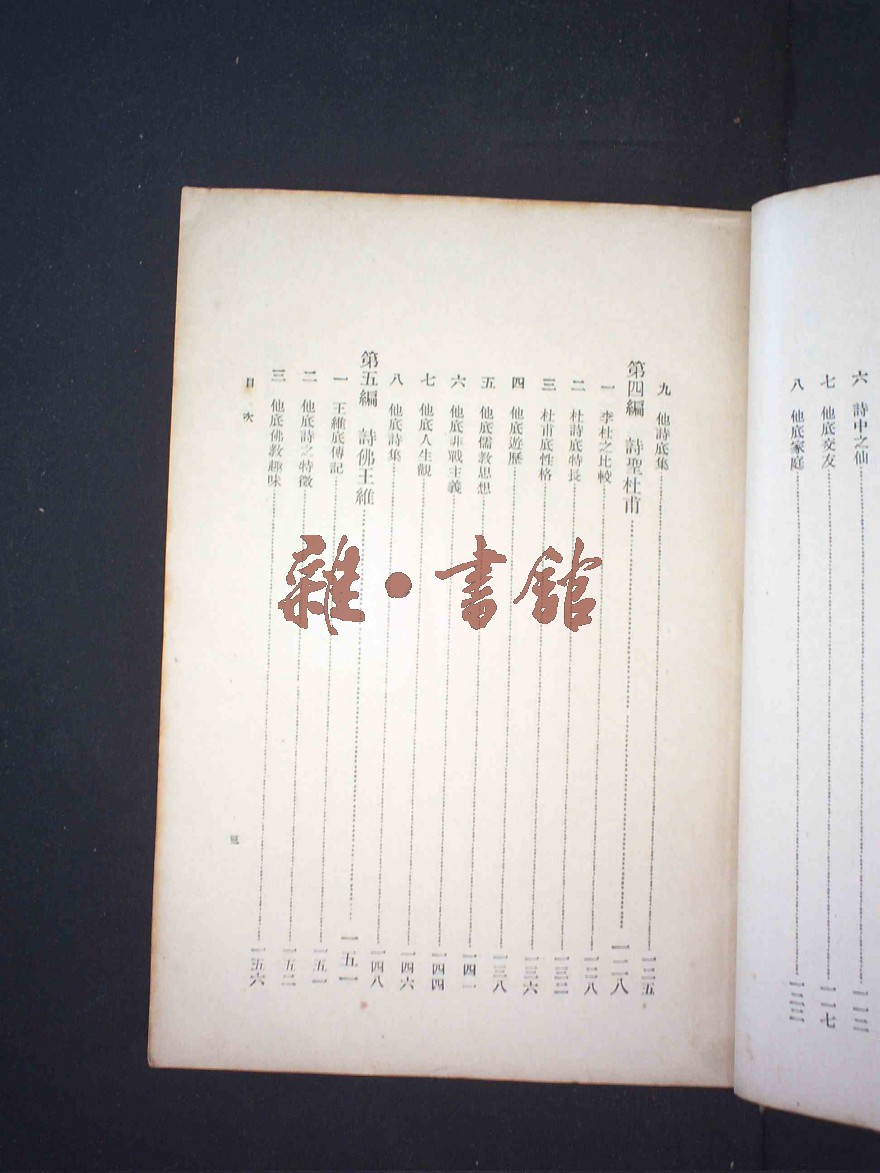 六 詩中之仙 一一二
七 他底交友 一一七
八 他底家庭 一二二
九 他詩底集 一二五
第四編 詩聖杜甫 一二八
一 李杜之比較 一二八
二 杜詩底特長 一三二
三 杜甫底性格 一三六
四 他底遊歷 一三八
五 他底儒教思想 一四一
六 他底非戰主義 一四四
七 他底人生觀 一四六
八 他底詩集 一四八
第五編 詩佛王維 一五一
一 王維底傳記 一五一
二 他底詩之特徵 一五二
三 他底佛教趣味 一五六
目次
雜·書館